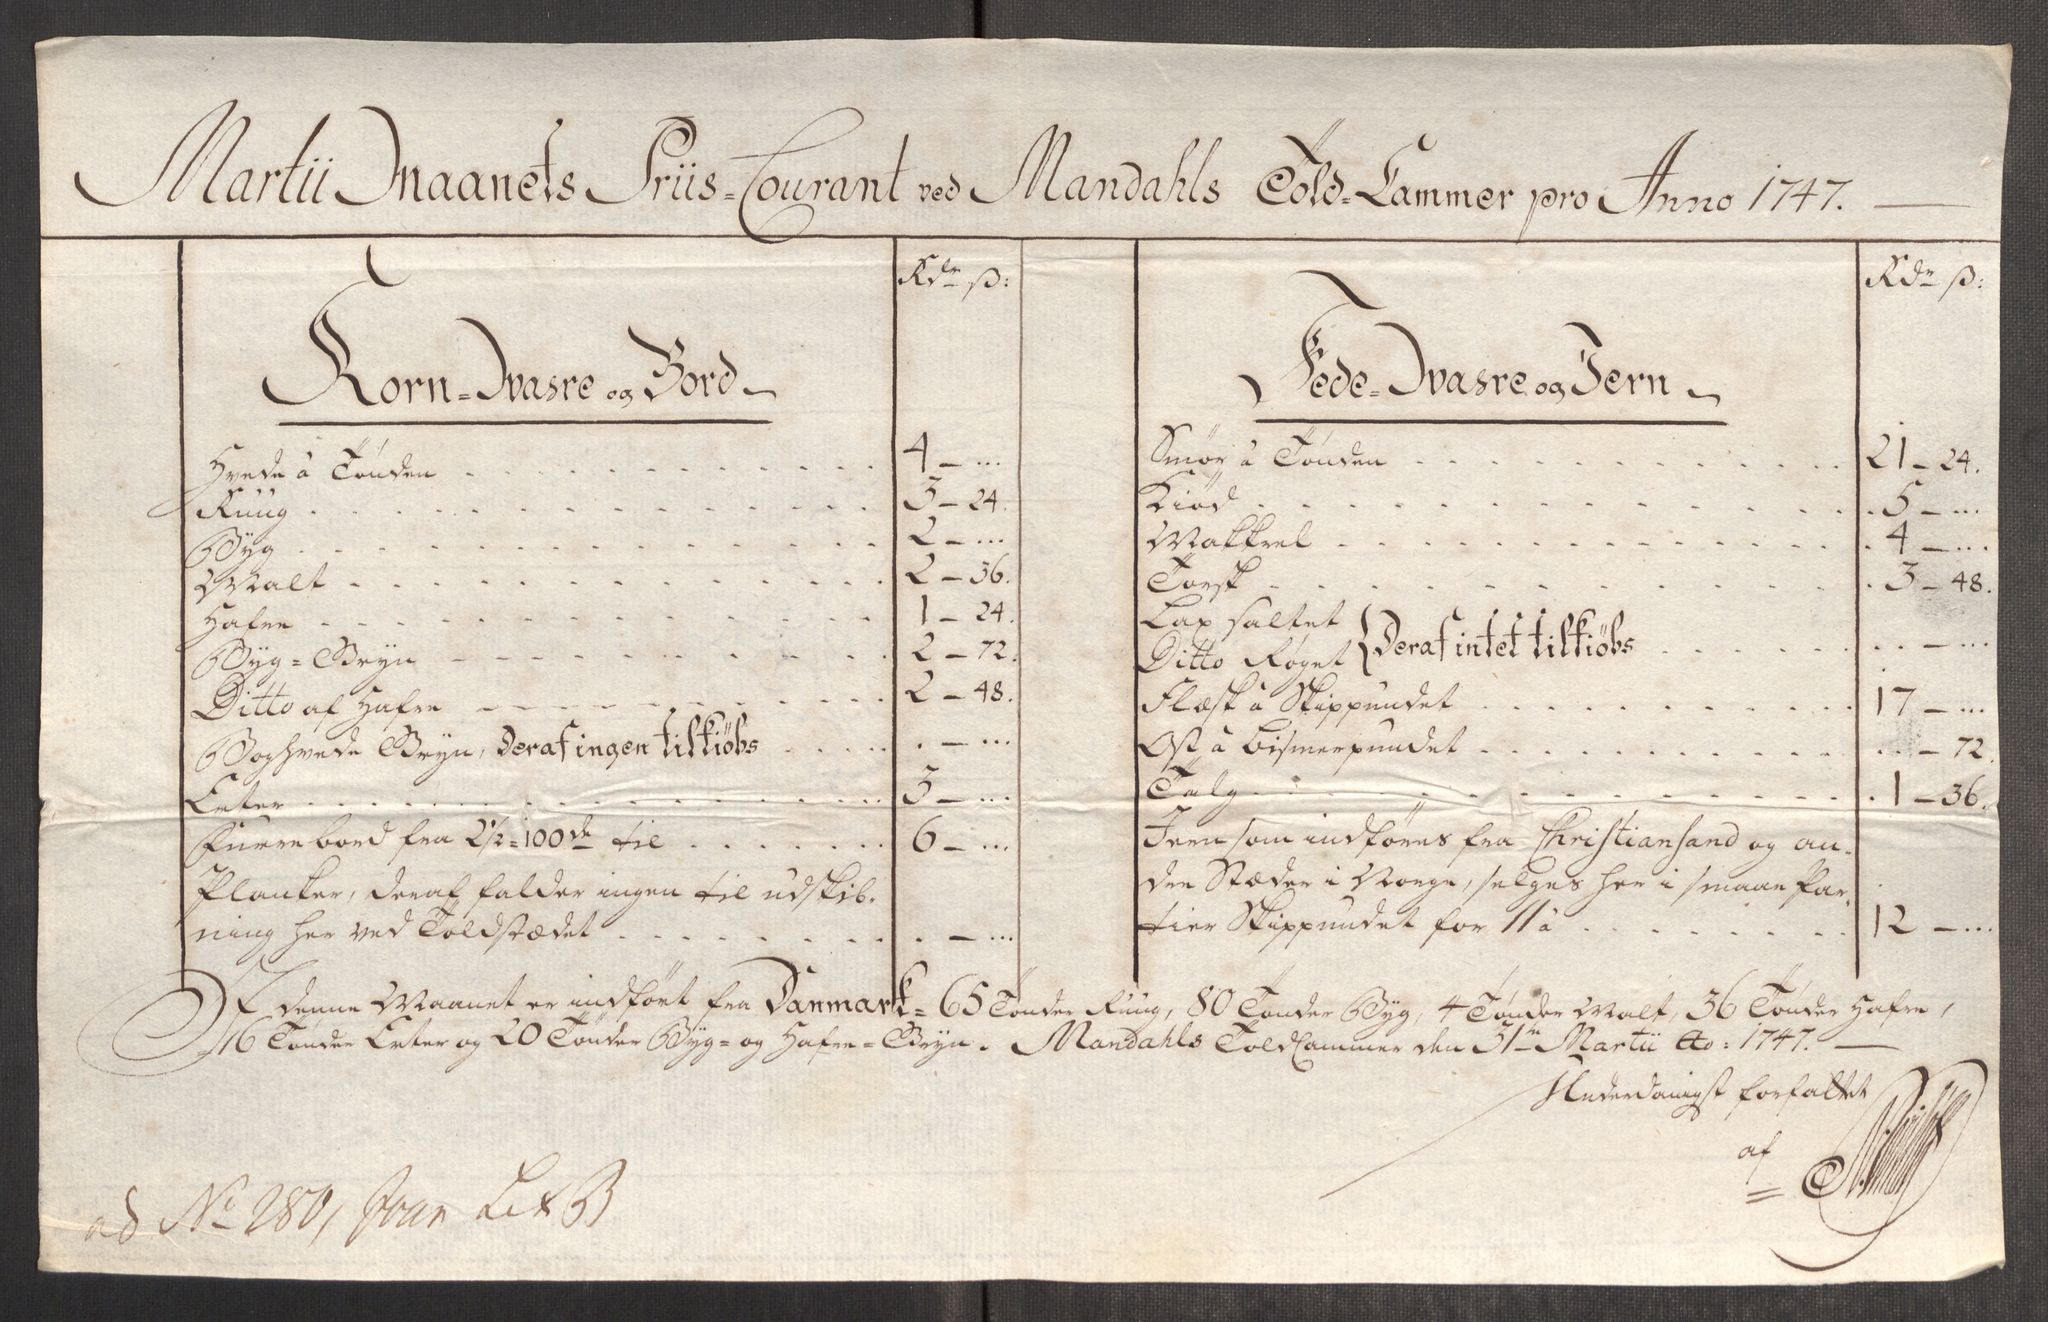 Martii Maanets Priis-Courant ved Mandahls Told-Cammer pro Anno 1747.
Rdr ß:
Korn-Vahre og Bord
Hvede á Tønden 4 - ...
Ruug 3 - 24.
Byg 2 - ...
Malt 2 - 36.
Hafre 1 - 24.
Byg-Gryn 2 - 72.
Ditto af Hafre 2 - 48.
Boghvede Gryn, deraf ingen tilkiöbs . - ...
Erter 3 - ...
Furrebord fra 2½ = 100de til 6 - ...
Planker, deraf falder ingen til udskib-
ning her ved Toldstædet . - ...
Rdr ß:
Fede-Vahre og Jern
Smør á Tønden 21 - 24.
Kiød 5 - ...
Makkrel 4 - ...
Torsk 3 - 48.
Lax saltet
Ditto Røget } Deraf intet tilkiöbs . - ...
Flæsk á Skippundet 17 - ...
Ost á Bismerpundet .. - 72.
Talg 1 - 36.
Jern som indføres fra Christiansand og an-
dre Stæder i Norge, selges her i smaae Par-
tier Skippundet for 11 á 12 - ...
I denne Maanet er indført fra Danmark = 65 Tønder Ruug, 80 Tønder Byg, 4 Tønder Malt, 36 Tønder Hafre,
16 Tønder Erter og 20 Tønder Byg- og Hafre-Gryn. Mandahls ToldCammer den 31te Martii Ao: 1747.
Underdanigst forfattet
af
ad No 280, Lit B